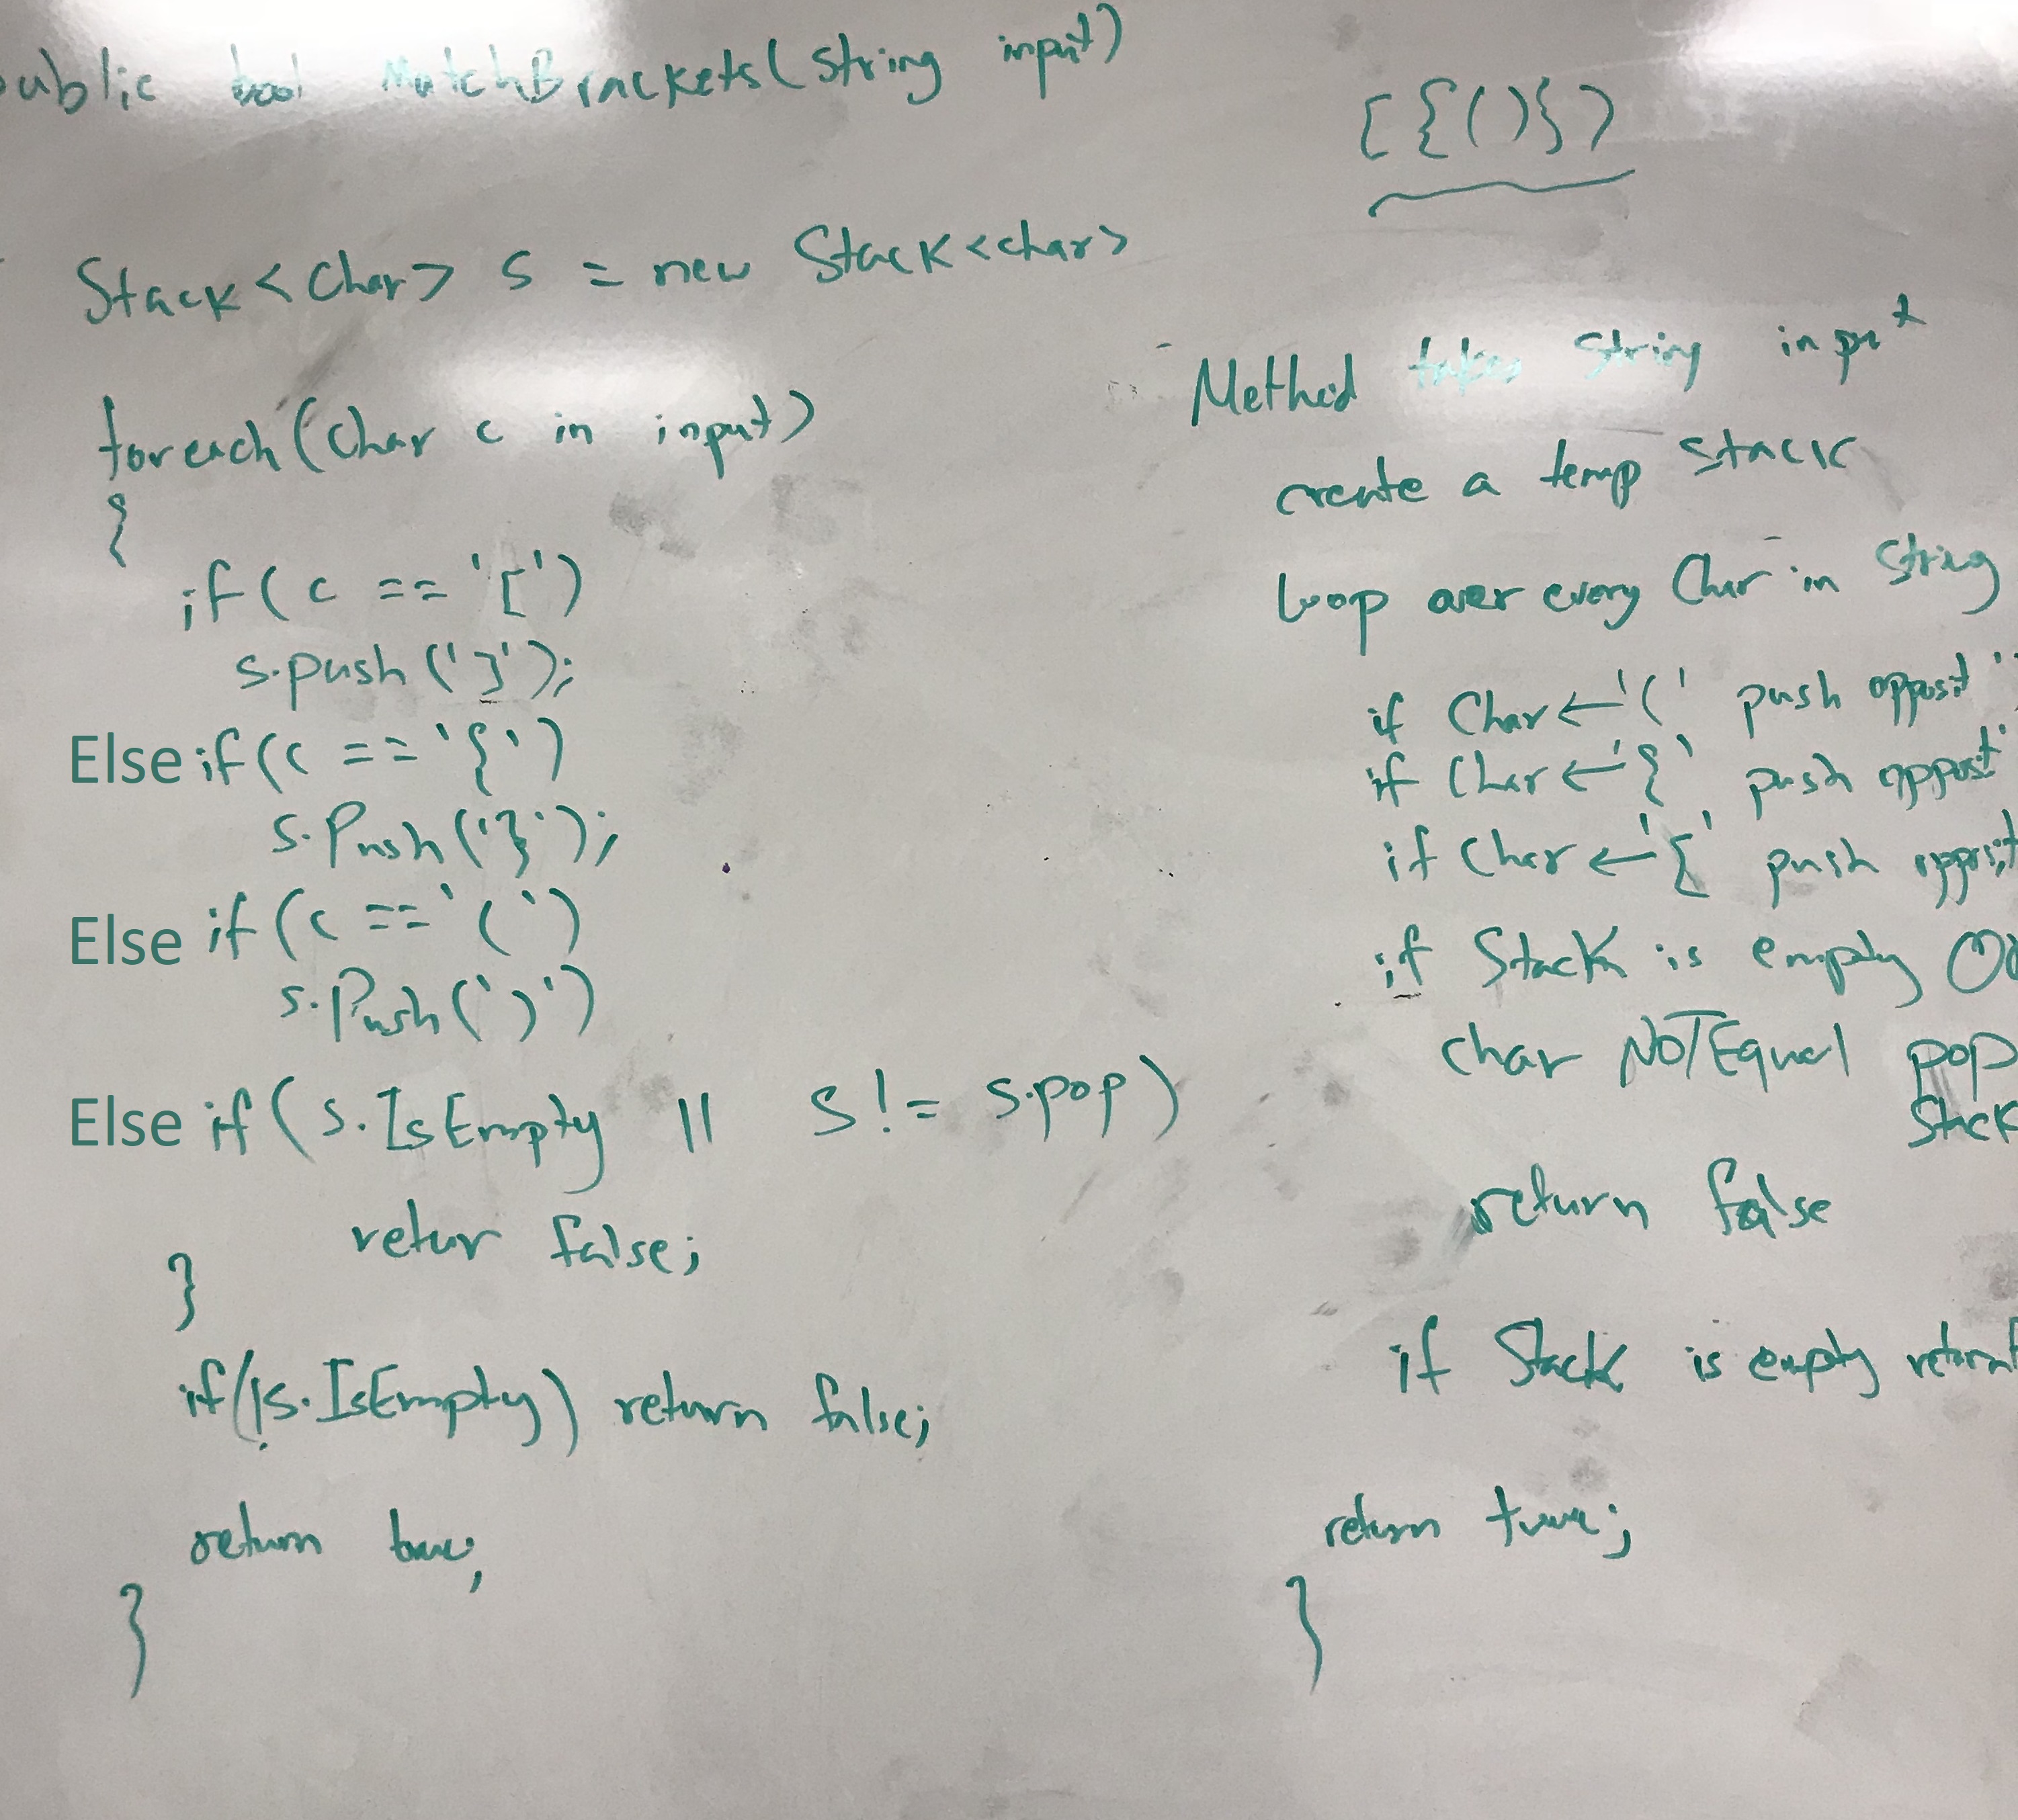 public bool MatchBrackets(String input)
Stack<Char> S = new Stack<char>
foreach(Char c in input)
{
if(c == '[')
s.push(']');
Else if(c == '{')
s.Push('}');
Else if(c == '(')
s.Push(')')
Else if(s.IsEmpty || S != s.pop)
retur false;
}
if(!s.IsEmpty) return false;
return true;
}
[{()})
Method takes String input
create a temp stack
Loop over every Char in String
if Char ← '(' push opposit '
if Char ← '{' push oppost '
if Char ← '[' push opposit
if Stack is empty
char NOTEqual pop
Stack
return false
if Stack is empty return
return true;
}